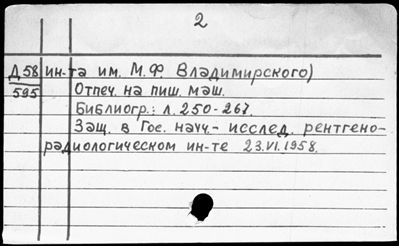 2
Д58 ин-та им. М.Ф. Владимирского)
595 Отпеч. на пиш. маш.
Библиогр.: л. 250-267.
Защ. в Гос. научн.- исслед. рентгено-
радиологическом ин-те 23.VI.1958.